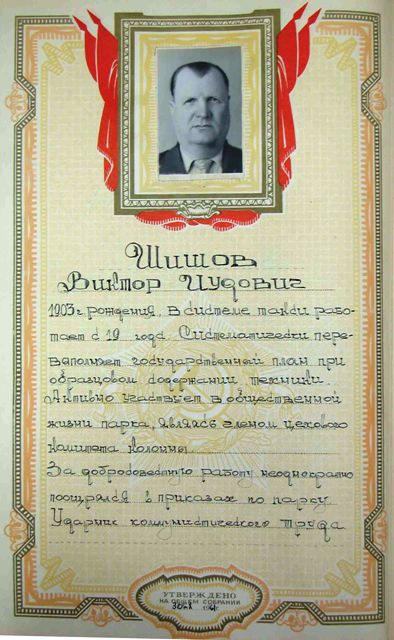 Шишов
Виктор Иудович
1903 г. рождения. В системе такси рабо-
тает с 19 года. Систематически пере-
выполняет государственней план при
образцовом содержании техники.
Активно участвует в общественной
жизни парка, являясь членом цехового
комитета колонны.
За добросовестную работу неоднократно
поощрялся в приказах по парку
Ударник коммунистического труда
УТВЕРЖДЕНО
НА ОБЩЕМ СОБРАНИИ
196